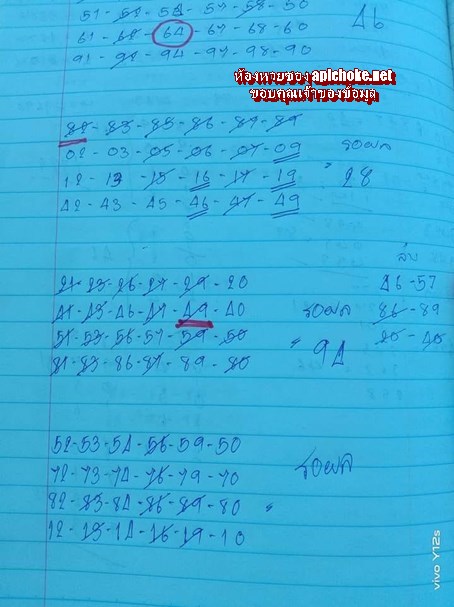 51-52-54-57-58-50
61-62-64-67-68-60
46
91-92-94-97-98-90
ห้องหวยของ aplchoke.net
ขอบคุณเจ้าของข้อมูล
82-83-85-86-87-89
02-03-05-06-07-09
รอผล
12-13-15-16-17-19
" 28
42-43-45-46-47-49
21-23-26-27-29-20
46-57
41-43-46-47-49-40
รอผล
86-89
51-53-56-57-59-50
" 94
20-40
81-83-86-87-89-80
52-53-54-56-59-50
รอผล
72-73-74-76-79-70
82-83-84-86-89-80 "
12-13-14-16-19-10
vivo Y12s